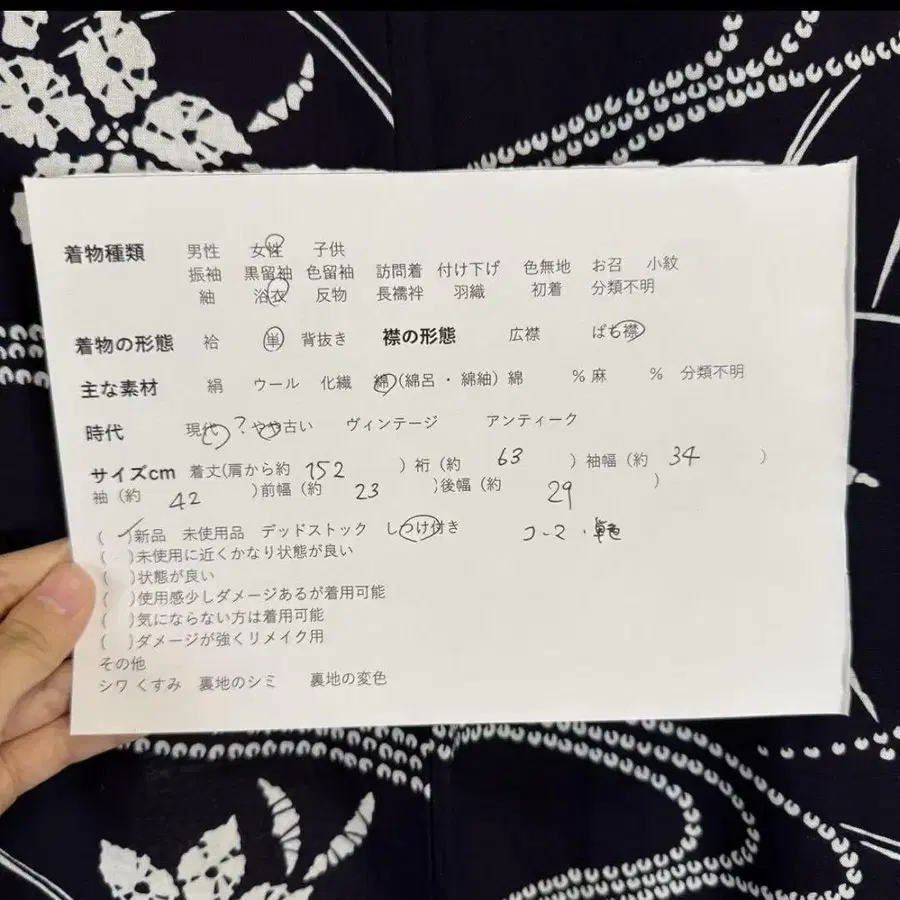 着物種類 男性 女性 子供
振袖 黒留袖 色留袖 訪問着 付け下げ 色無地 お召 小紋
紬 浴衣 反物 長襦袢 羽織 初着 分類不明
着物の形態 袷 単 背抜き 襟の形態 広襟 ばち襟
主な素材 絹 ウール 化繊 綿(綿呂・綿紬)綿 %麻 % 分類不明
時代 現代 ? やや古い ヴィンテージ アンティーク
サイズcm 着丈(肩から約 152 )裄(約 63 )袖幅(約 34 )
袖(約 42 )前幅(約 23 )後幅(約 29 )
( ✓)新品 未使用品 デッドストック しつけ付き
( )未使用に近くかなり状態が良い
( )状態が良い
( )使用感少しダメージあるが着用可能
( )気にならない方は着用可能
( )ダメージが強くリメイク用
その他
シワ くすみ 裏地のシミ 裏地の変色